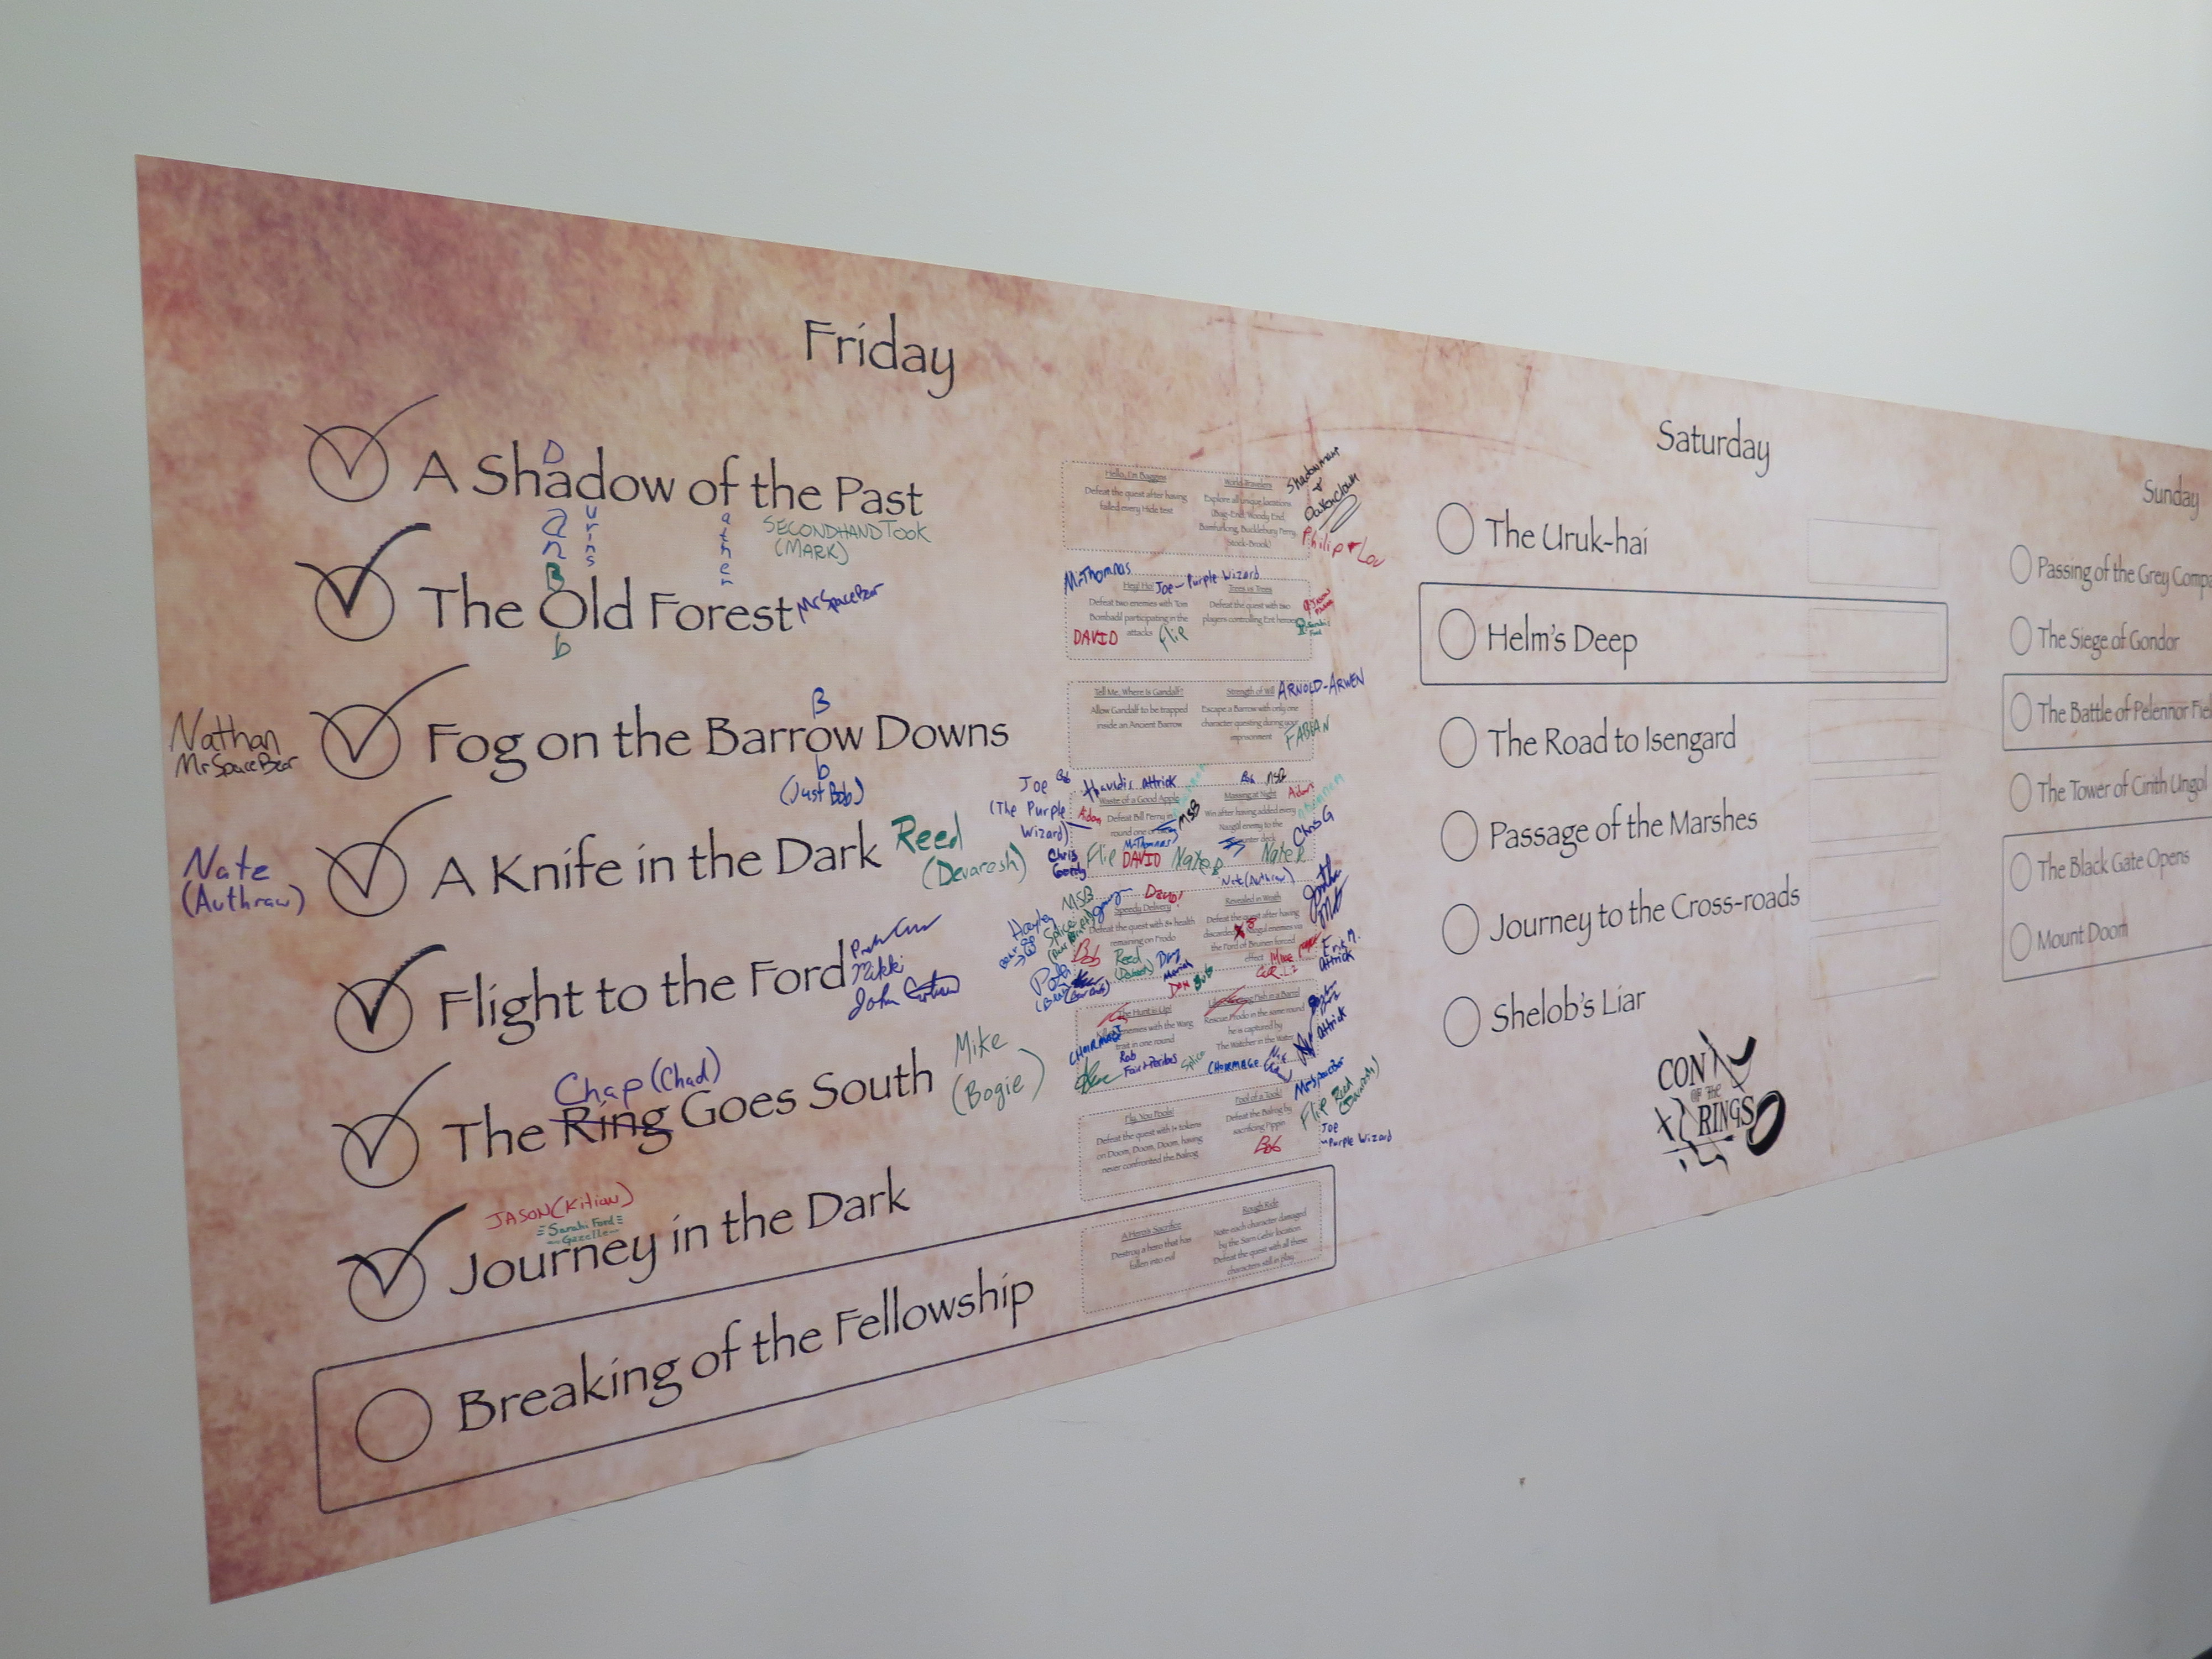 Friday
A Shadow of the Past
SECONDHANDTOOK
(MARK)
The Old Forest
MrSpaceBear
Nathan
MrSpaceBear
Fog on the Barrow Downs
(Just Bob)
Nate
(Authraw)
A Knife in the Dark
Reed
(Devaresh)
Flight to the Ford
Nikki
John
Chap (Chad)
The Ring Goes South
Mike
(Bogie)
JASON (Kitian)
Sarahi Ford
Gazelle
Journey in the Dark
Breaking of the Fellowship
Hello, I'm Baggins
Defeat the quest after having
failed every Hide test
World Travelers
Explore all unique locations
(Bag-End, Woody End,
Bamfurlong, Bucklebury Ferry,
Stock-Brook)
Philip + Lou
Mr.Thomnas
Joe - Purple Wizard
Hey! Ho!
Defeat two enemies with Tom
Bombadil participating in the
attacks
DAVID
Flip
Trees vs Trees
Defeat the quest with two
players controlling Ent heroes
Tell Me, Where Is Gandalf?
Allow Gandalf to be trapped
inside an Ancient Barrow
Strength of Will
Escape a Barrow with only one
character questing during your
imprisonment
ARNOLD-ARWEN
FABIAN
Joe
(The Purple
Wizard)
Attrick
Waste of a Good Apple
Defeat Bill Ferny in
round one or
Aidan
MSB
Chris
Flip
DAVID
Nate R
Missing at Night
Win after having added every
Nazgul enemy to the
encounter deck
Chris G
Nate R
Nate (Authraw)
MSB
David!
Speedy Delivery
Defeat the quest with 8+ health
remaining on Frodo
Hayley
Splice
Bob
Reed
Revealed in Wrath
Defeat the quest after having
discarded 3 Nazgul enemies via
the Ford of Bruinen forced
effect
Mike
Erik M.
Attrick
Dan
Bob
The Hunt is Up!
enemies with the Warg
trait in one round
Rob
Splice
Fish in a Barrel
Rescue Frodo in the same round
he is captured by
The Watcher in the Water
CHOIRMAGE
Attrick
MrSpaceBear
Flip
Reed
(Devaresh)
Joe
Purple Wizard
Fly, You Fools!
Defeat the quest with 1+ tokens
on Doom, Doom, Doom, having
never confronted the Balrog
Fool of a Took!
Defeat the Balrog by
sacrificing Pippin
Bob
A Hero's Sacrifice
Destroy a hero that has
fallen into evil
Rough Ride
Note each character damaged
by the Sarn Gebir location
Defeat the quest with all these
characters still in play
Saturday
The Uruk-hai
Helm's Deep
The Road to Isengard
Passage of the Marshes
Journey to the Cross-roads
Shelob's Liar
CON
OF THE
RINGS
Sunday
Passing of the Grey Comp
The Siege of Gondor
The Battle of Pelennor Fiel
The Tower of Cirith Ungol
The Black Gate Opens
Mount Doom